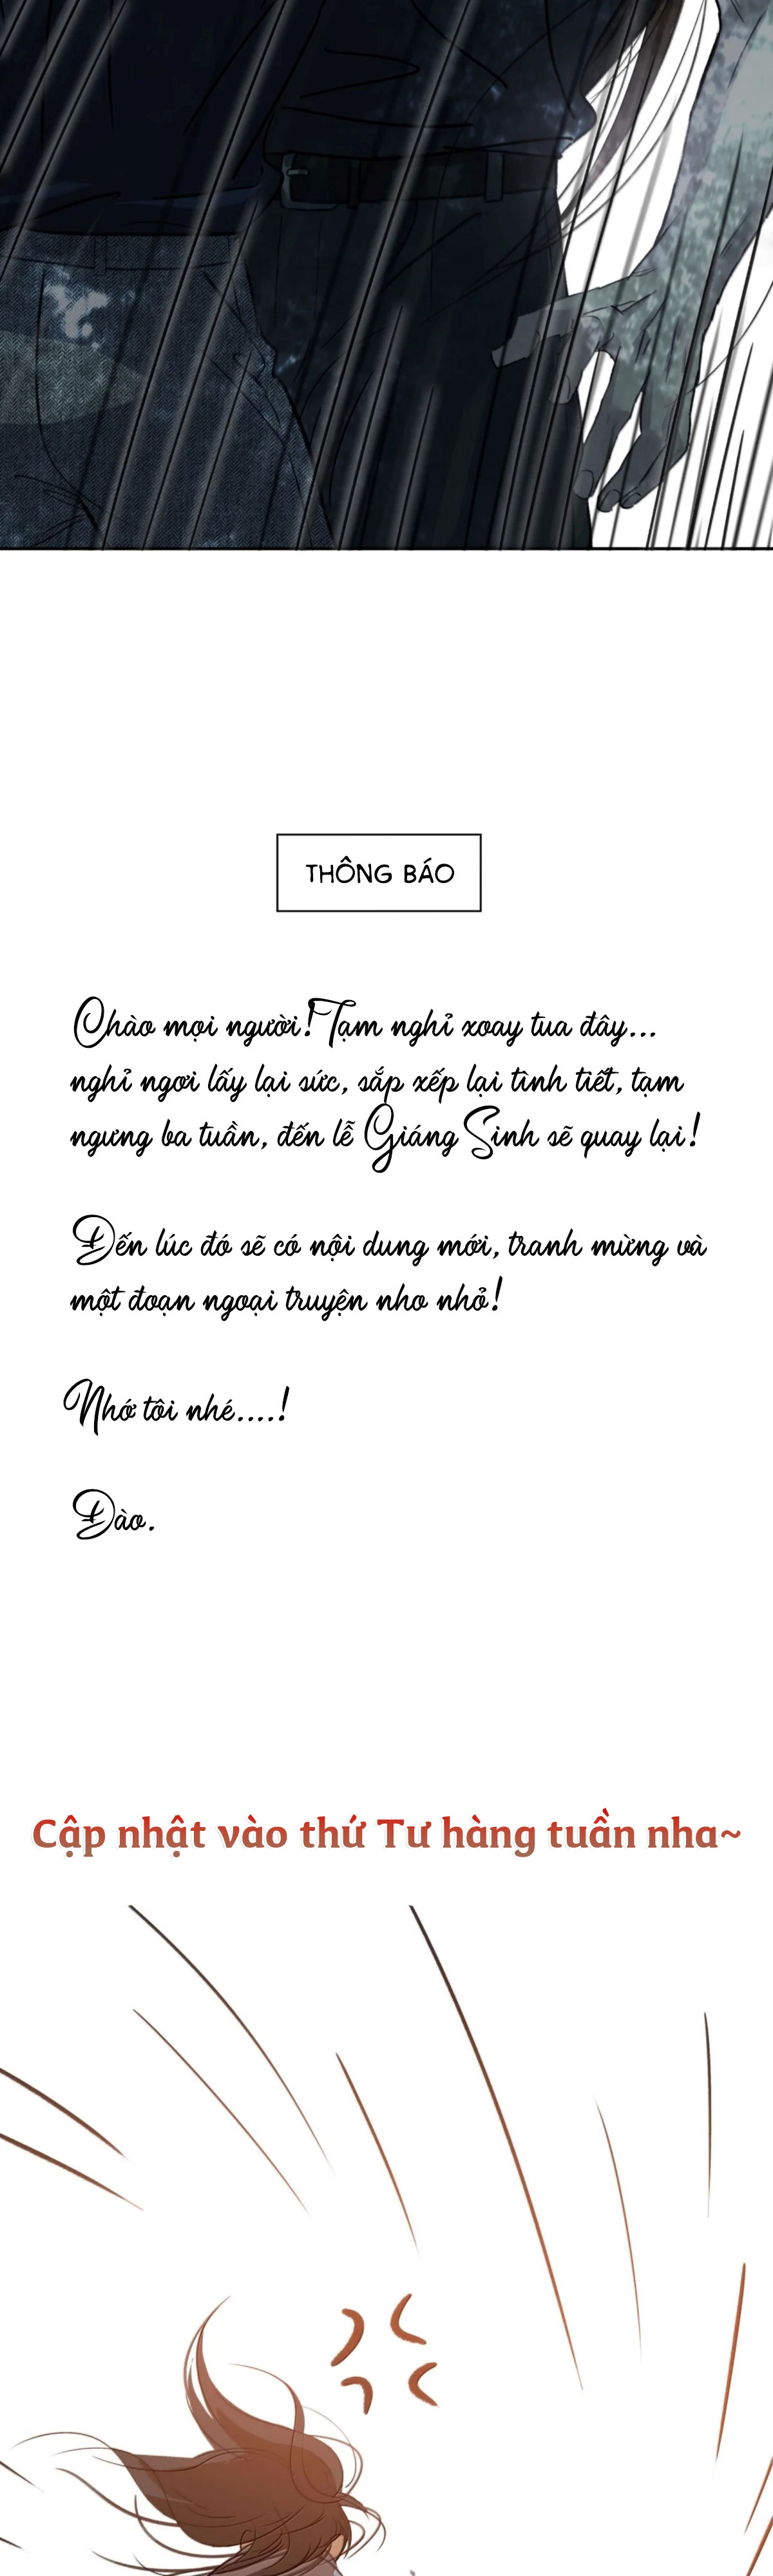 THÔNG BÁO
Chào mọi người! Tạm nghỉ xoay tua đây...
nghỉ ngơi lấy lại sức, sắp xếp lại tình tiết, tạm
ngưng ba tuần, đến lễ Giáng Sinh sẽ quay lại!
Đến lúc đó sẽ có nội dung mới, tranh mừng và
một đoạn ngoại truyện nho nhỏ!
Nhớ tôi nhé....!
Đào.
Cập nhật vào thứ Tư hàng tuần nha~